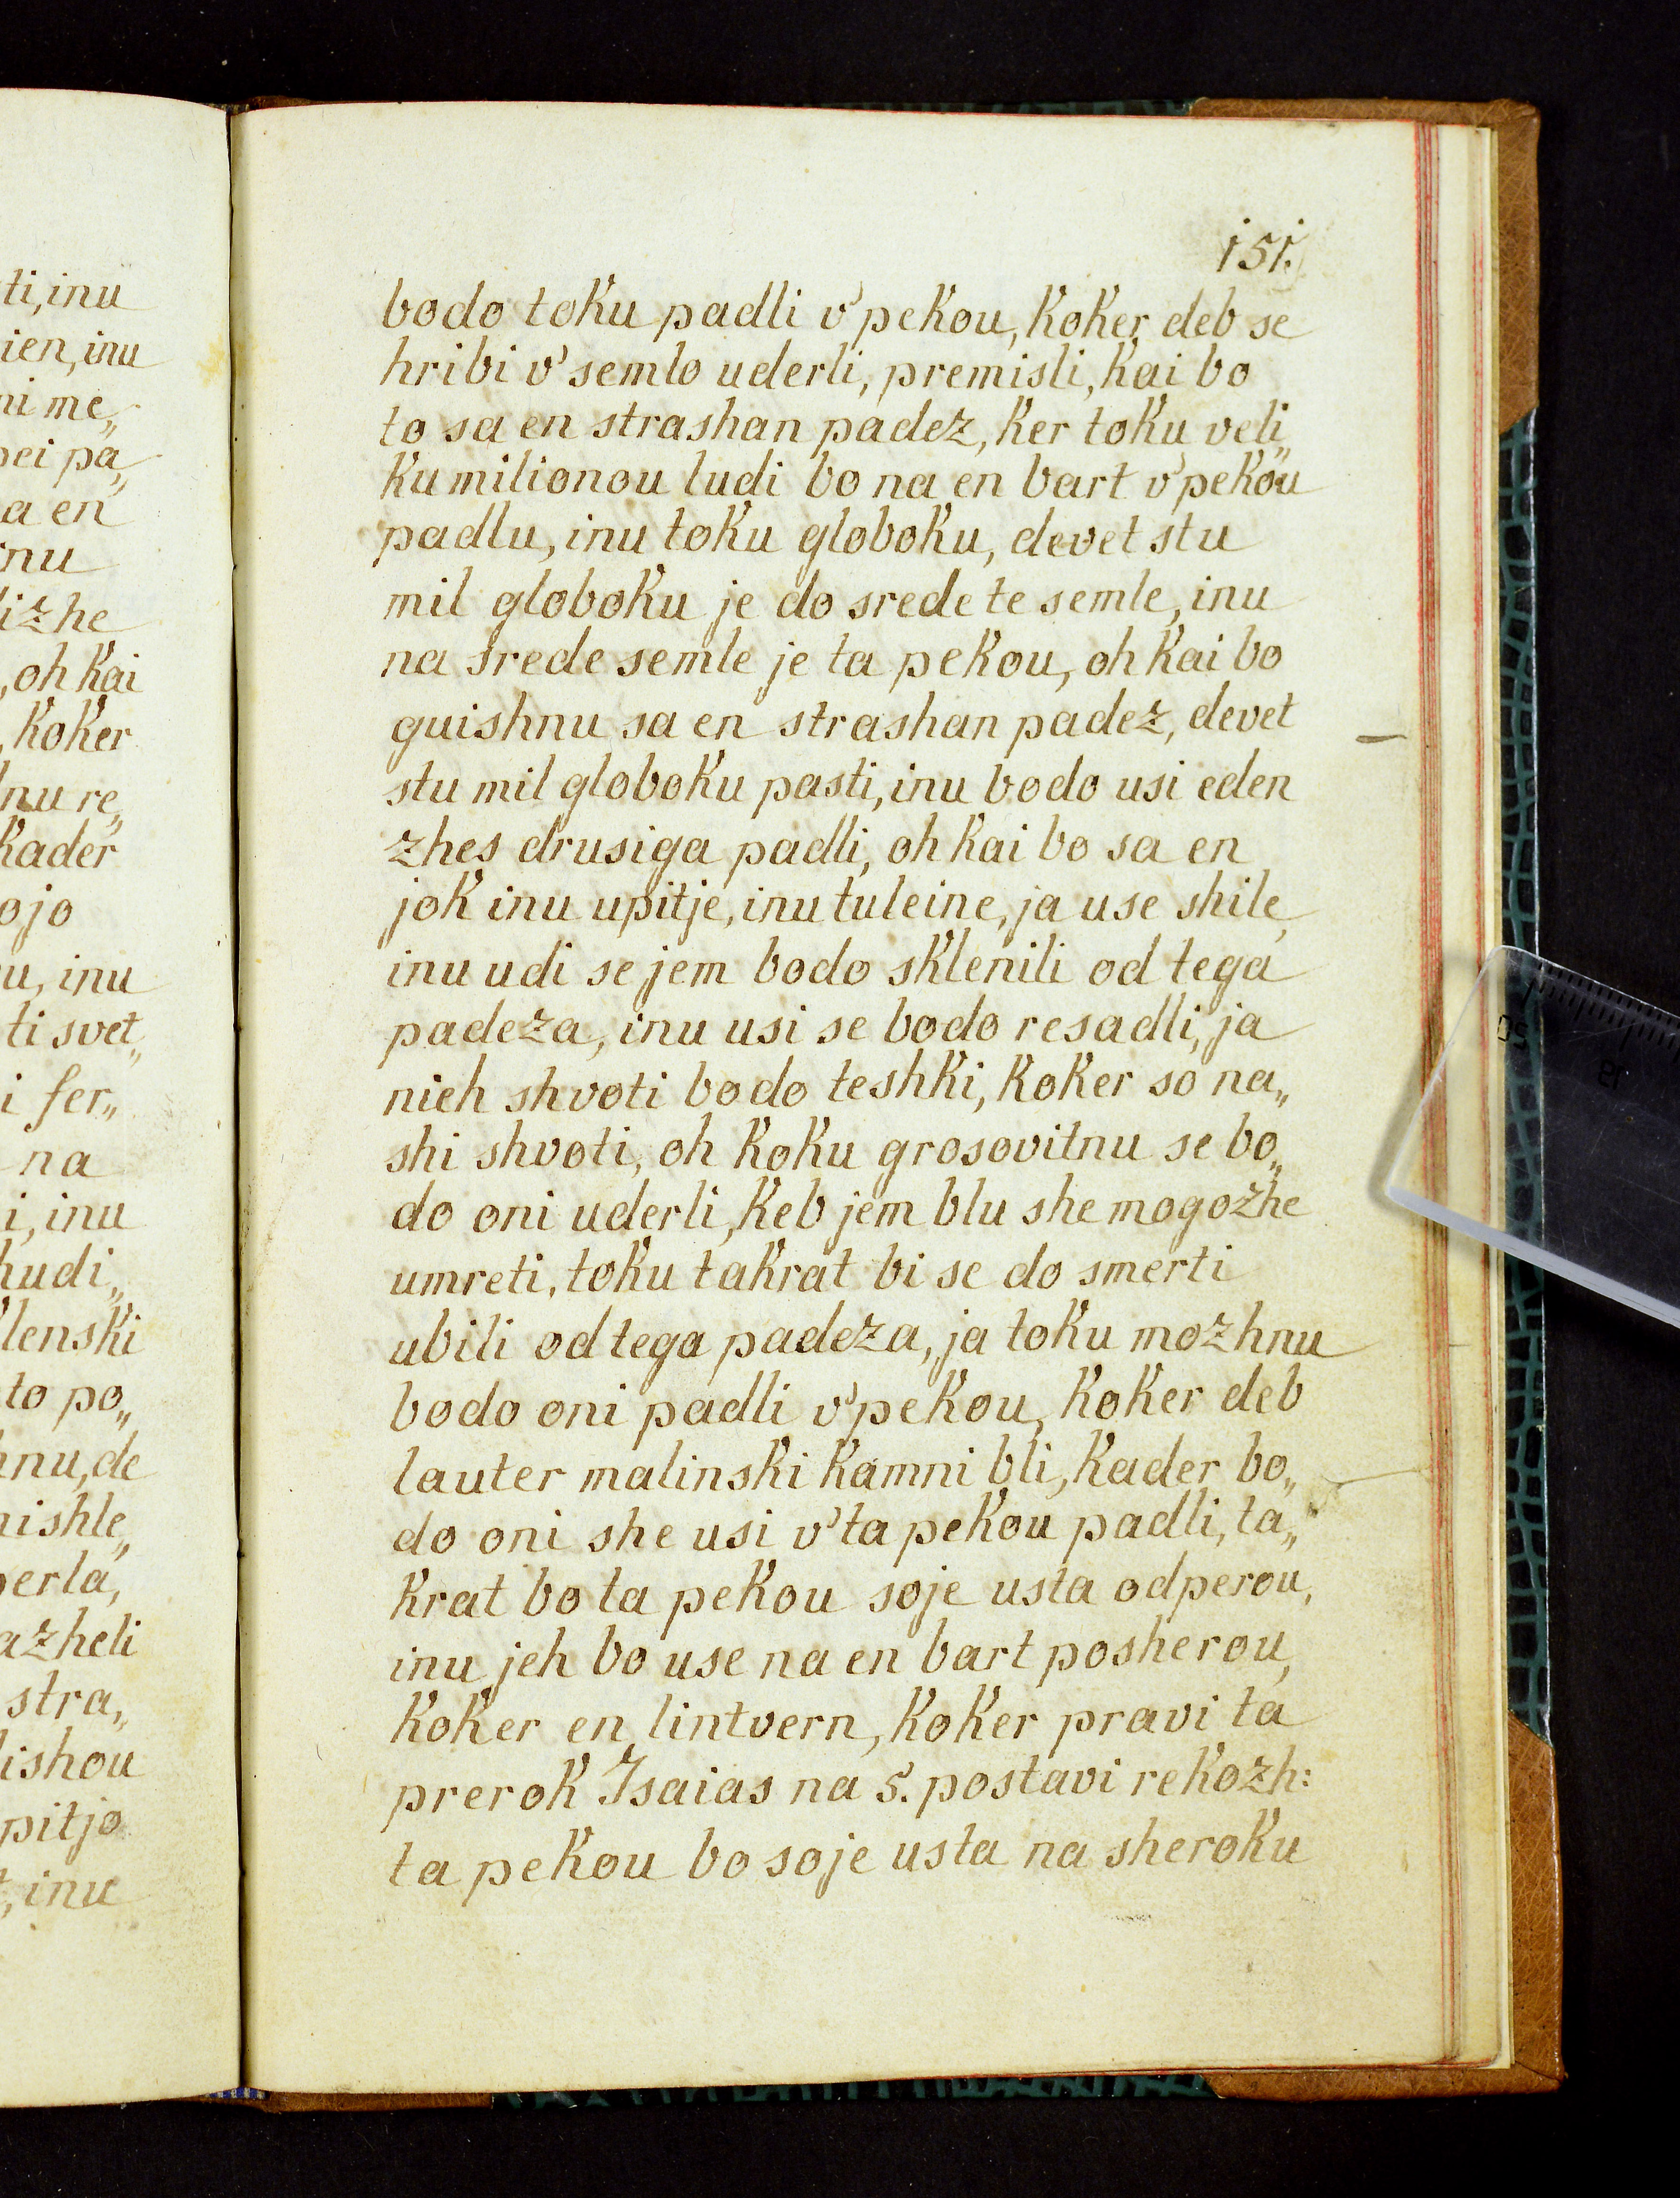 ti, inu
ien, inu
ni me„
pei pa„
a en
inu
lizhe
, oh kai
, koker
lnu re„
kader
ojo
u, inu
ti svet„
i fer„
na
i, inu
hudi„
klenski
to po„
hnu, de
mishle„
perla,
azheli
stra„
lishou
pitjo
t, inu
151.
bodo toku padli v' pekou, koker deb se
hribi v' semlo uderli, premisli, kai bo
to sa en strashan padez, ker toku veli„
ku milionou ludi bo na en bart v' pekou
padlu, inu toku globoku, devet stu
mil globoku je do srede te semle, inu
na srede semle je ta pekou, oh kai bo
guishnu sa en strashan padez, devet
stu mil globoku pasti, inu bodo usi eden
zhes drusiga padli, oh kai bo sa en
jok inu upitje, inu tuleine, ja use shile,
inu udi se jem bodo sklenili od tega
padeza, inu usi se bodo resadli, ja
nieh shvoti bodo teshki, koker so na„
shi shvoti, oh koku grosovitnu se bo„
do oni uderli, keb jem blu she mogozhe
umreti, toku takrat bi se do smerti
ubili od tega padeza, ja toku mozhnu
bodo oni padli v' pekou, koker deb
lauter malinski kamni bli, kader bo„
do oni she usi v' ta pekou padli, ta„
krat bo ta pekou soje usta odperou,
inu jeh bo use na en bart posherou,
koker en lintvern, koker pravi ta
prerok Isaias na 5. postavi rekozh:
ta pekou bo soje usta na sheroku